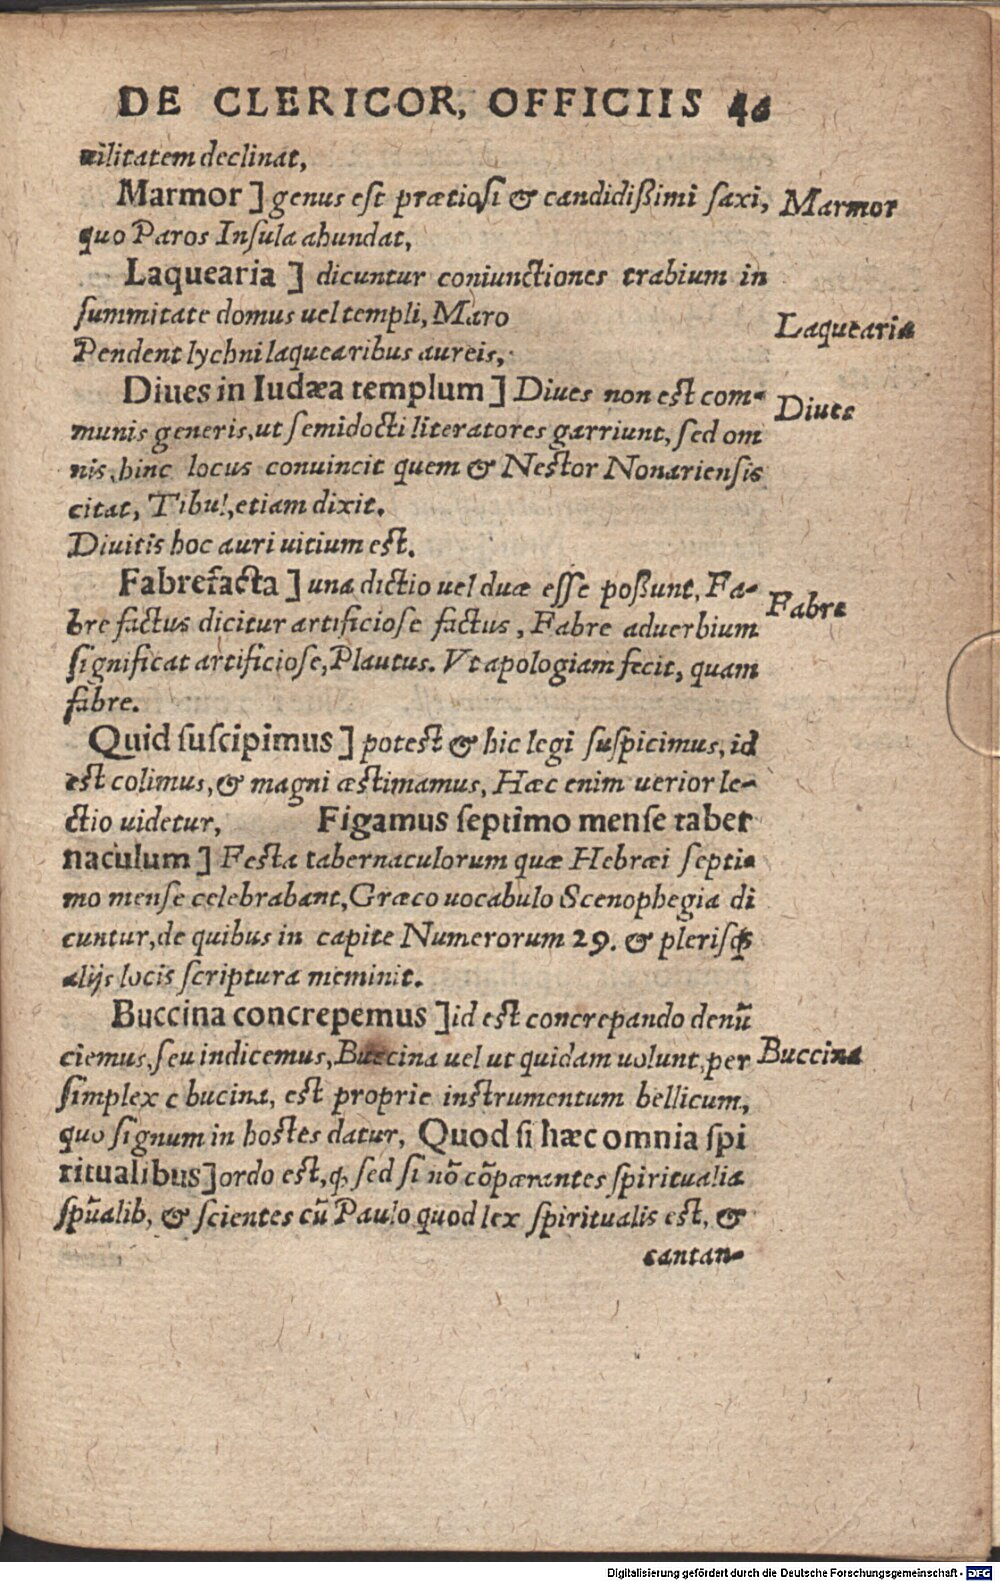 DE CLERICOR, OFFICIIS 40
uilitatem declinat,
Marmor] genus est prætiosi & candidißimi saxi,
Marmor
quo Paros Insula abundat,
Laquearia] dicuntur coniunctiones trabium in
summitate domus uel templi, Maro
Laquearia
Pendent lychni laquearibus aureis,
Diues in Iudæa templum] Diues non est com-
Diues
munis generis, ut semidocti literatores garriunt, sed om
nis, hinc locus conuincit quem & Nestor Nonariensis
citat, Tibul, etiam dixit.
Diuitis hoc auri uitium est.
Fabrefacta] una dictio uel duæ esse possunt, Fa-
Fabre
bre factus dicitur artificiose factus, Fabre aduerbium
significat artificiose, Plautus. Vt apologiam fecit, quam
fabre.
Quid suscipimus] potest & hic legi suspicimus, id
est colimus, & magni æstimamus, Hæc enim uerior le-
ctio uidetur, Figamus septimo mense taber
naculum] Festa tabernaculorum quæ Hebræi septi-
mo mense celebrabant, Græco uocabulo Scenophegia di
cuntur, de quibus in capite Numerorum 29. & plerisq;
alijs locis scriptura meminit.
Buccina concrepemus] id est concrepando denū
ciemus, seu indicemus, Buccina uel ut quidam uolunt, per
Buccina
simplex c bucina, est proprie instrumentum bellicum,
quo signum in hostes datur, Quod si hæc omnia spi
ritualibus] ordo est, q, sed si nō cōpærantes spiritualia
spūalib, & scientes cū Paulo quod lex spiritualis est, &
cantan-
Digitalisierung gefördert durch die Deutsche Forschungsgemeinschaft - DFG